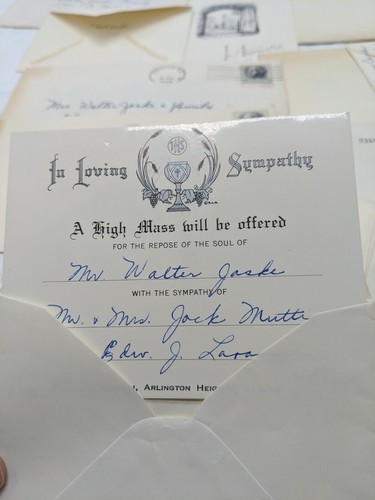 Mrs. Walter Jaske & family
IHS
In Loving Sympathy
A High Mass will be offered
FOR THE REPOSE OF THE SOUL OF
Mr Walter Jaske
WITH THE SYMPATHY OF
Mr. & Mrs. Jack
Edw. J.
, ARLINGTON HEIG